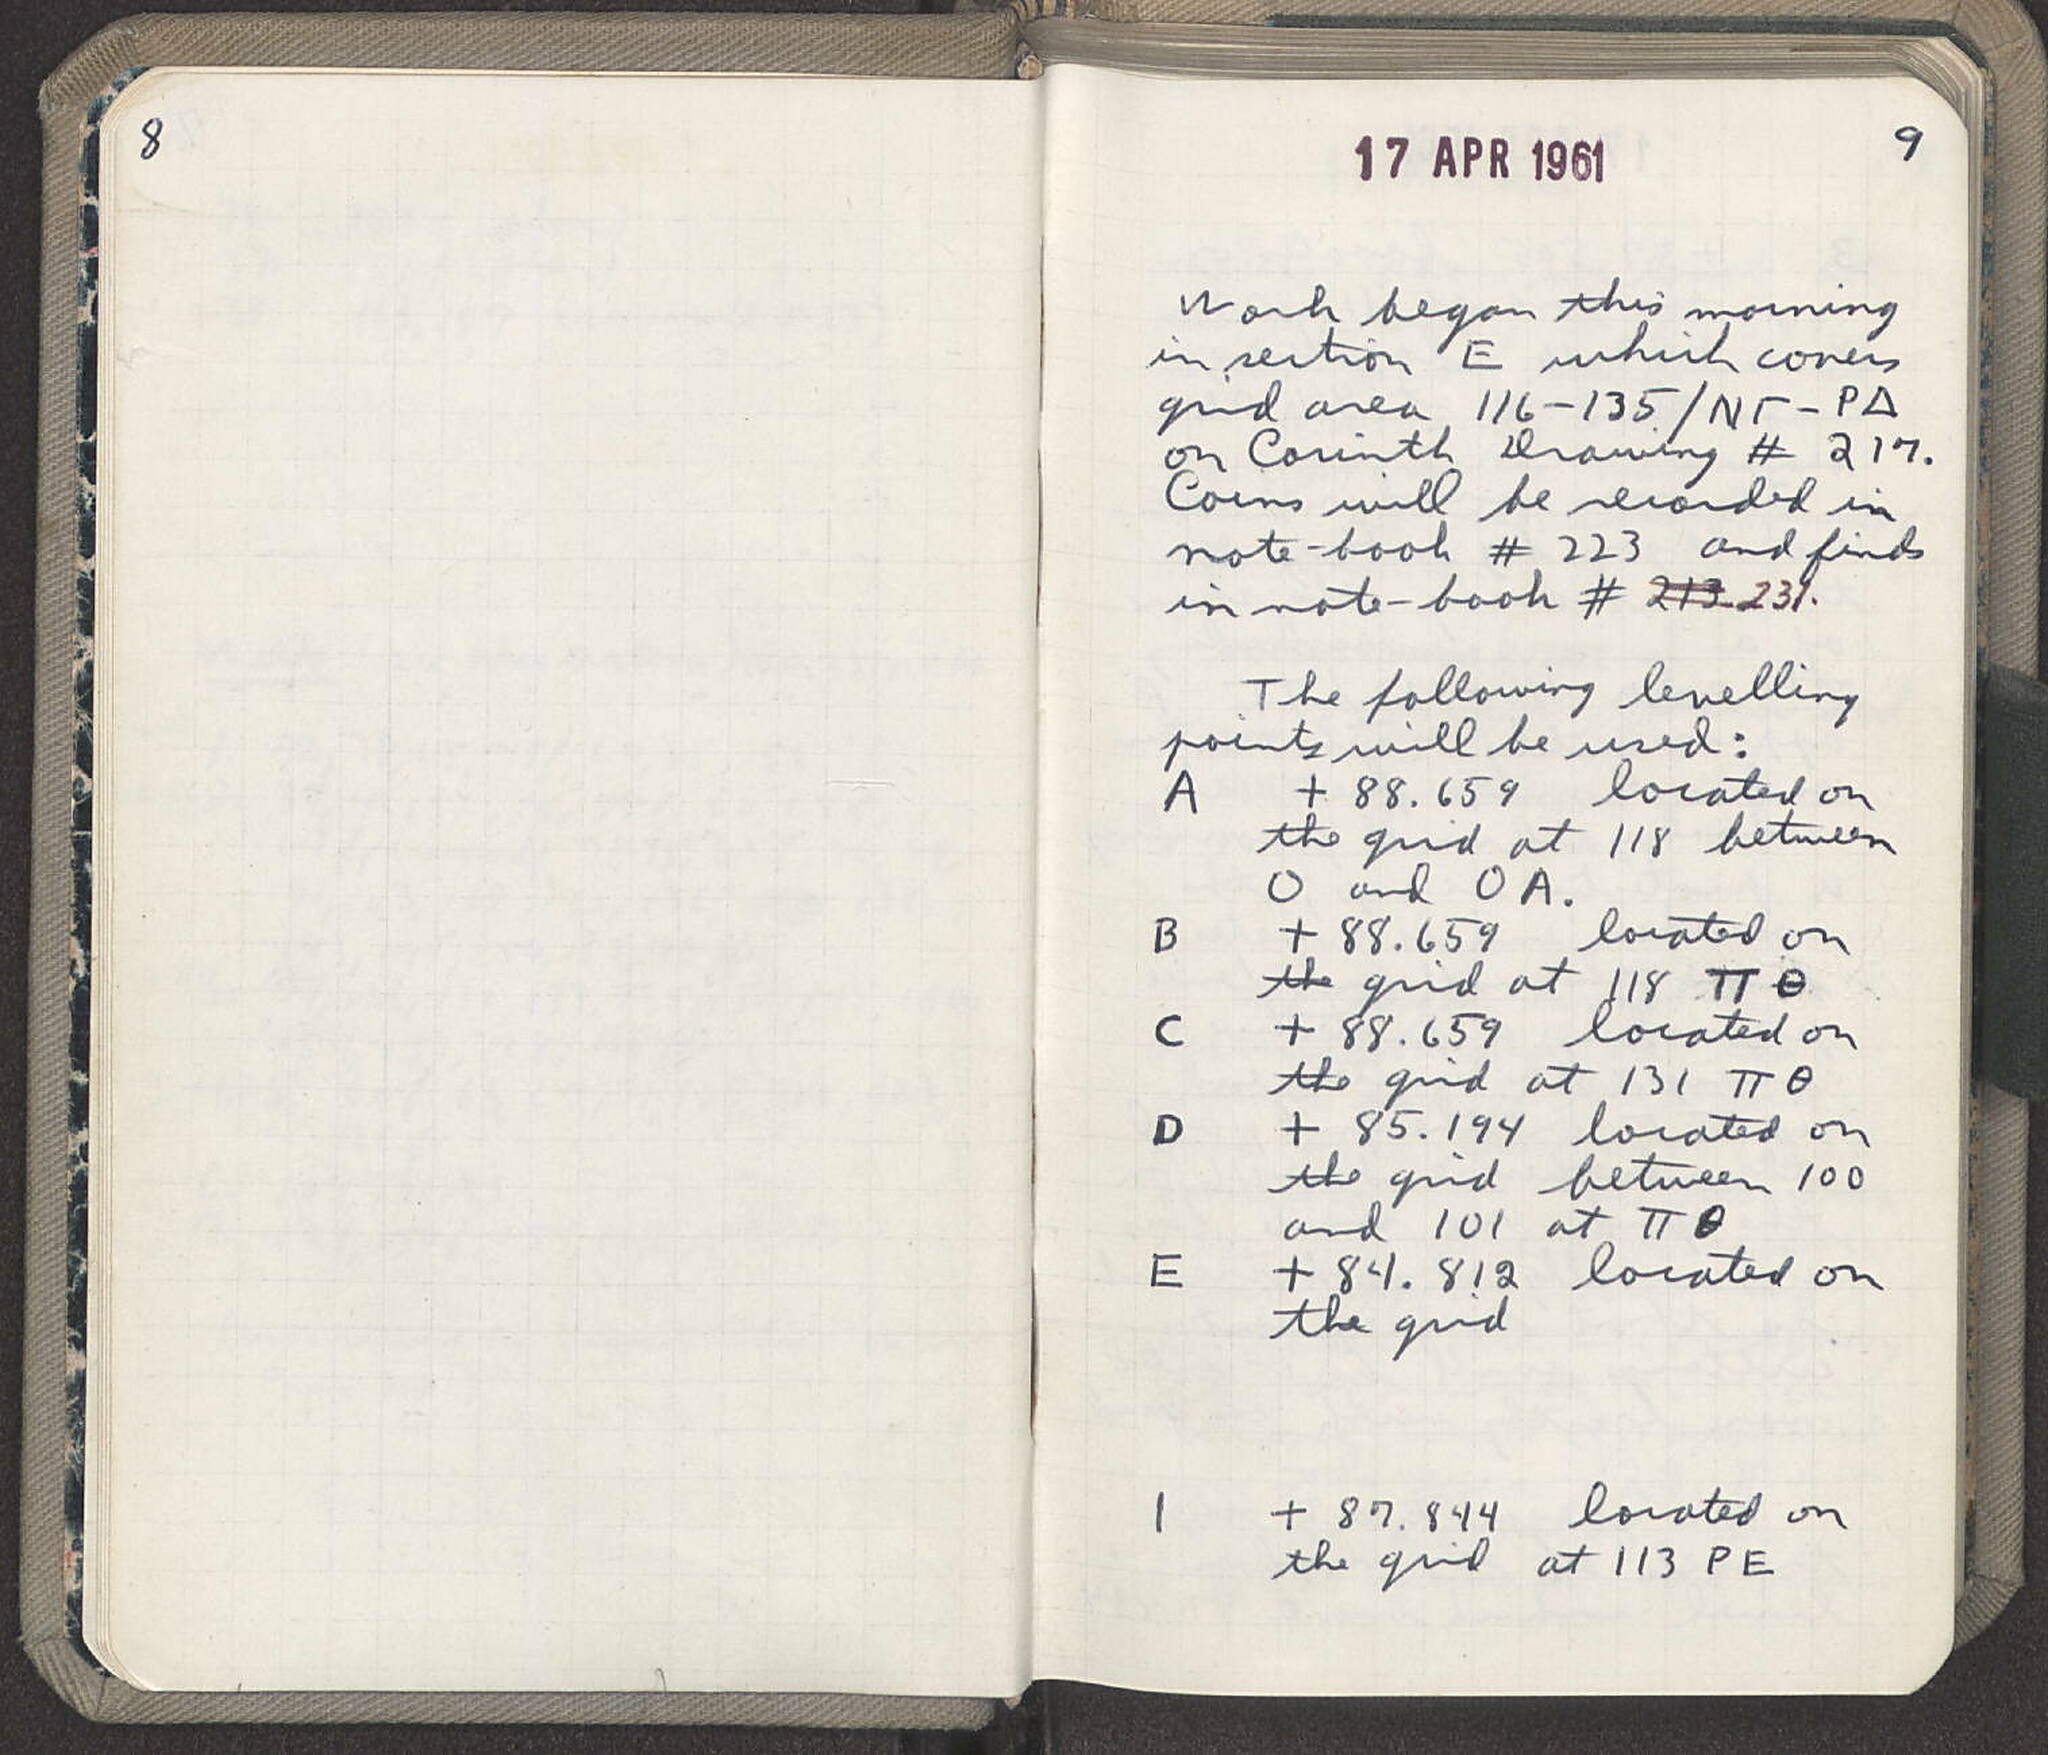 8
9
17 APR 1961
Work began this morning
in section E which covers
grid area 116-135/ΝΓ-ΡΔ
on Corinth Drawing # 217.
Coins will be recorded in
note-book # 223 and finds
in note-book # 213 231.
The following levelling
points will be used:
A + 88.659 located on
the grid at 118 between
O and OA.
B + 88.659 located on
the grid at 118 Πθ
C + 88.659 located on
the grid at 131 Πθ
D + 85.194 located on
the grid between 100
and 101 at Πθ
E + 84.812 located on
the grid
1 + 87.844 located on
the grid at 113 PE